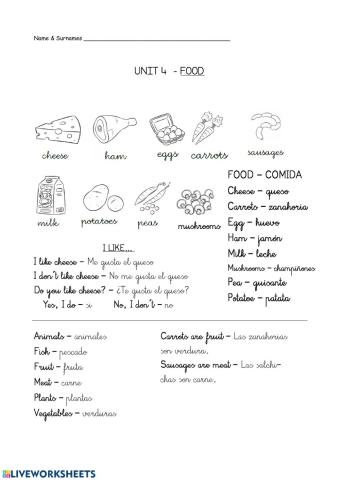 Name & Surnames
UNIT 4 - FOOD
cheese
ham
eggs
carrots
sausages
milk
potatoes
peas
mushrooms
FOOD - COMIDA
Cheese - queso
Carrots - zanahoria
Egg - huevo
Ham - jamón
Milk - leche
Mushrooms - champiñones
Pea - guisante
Potatoe - patata
I LIKE...
I like cheese - Me gusta el queso
I don't like cheese - No me gusta el queso
Do you like cheese? - ¿Te gusta el queso?
Yes, I do - si
No, I don't - no
Animals - animales
Fish - pescado
Fruit - fruta
Meat - carne
Plants - plantas
Vegetables - verduras
Carrots are fruit - Las zanahorias
son verdura.
Sausages are meat - Las salchi-
chas son carne.
LIVEWORKSHEETS